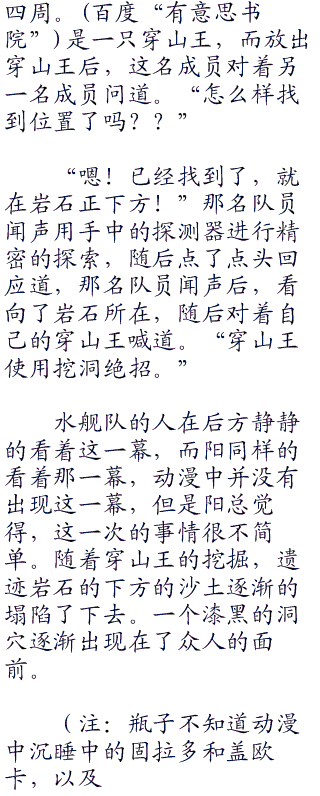 四周。(百度“有意思书
院”)是一只穿山王，而放出
穿山王后，这名成员对着另
一名成员问道。“怎么样找
到位置了吗？？”
“嗯！已经找到了，就
在岩石正下方！”那名队员
闻声用手中的探测器进行精
密的探索，随后点了点头回
应道，那名队员闻声后，看
向了岩石所在，随后对着自
己的穿山王喊道。“穿山王
使用挖洞绝招。”
水舰队的人在后方静静
的看着这一幕，而阳同样的
看着那一幕，动漫中并没有
出现这一幕，但是阳总觉
得，这一次的事情很不简
单。随着穿山王的挖掘，遗
迹岩石的下方的沙土逐渐的
塌陷了下去。一个漆黑的洞
穴逐渐出现在了众人的面
前。
（注：瓶子不知道动漫
中沉睡中的固拉多和盖欧
卡，以及